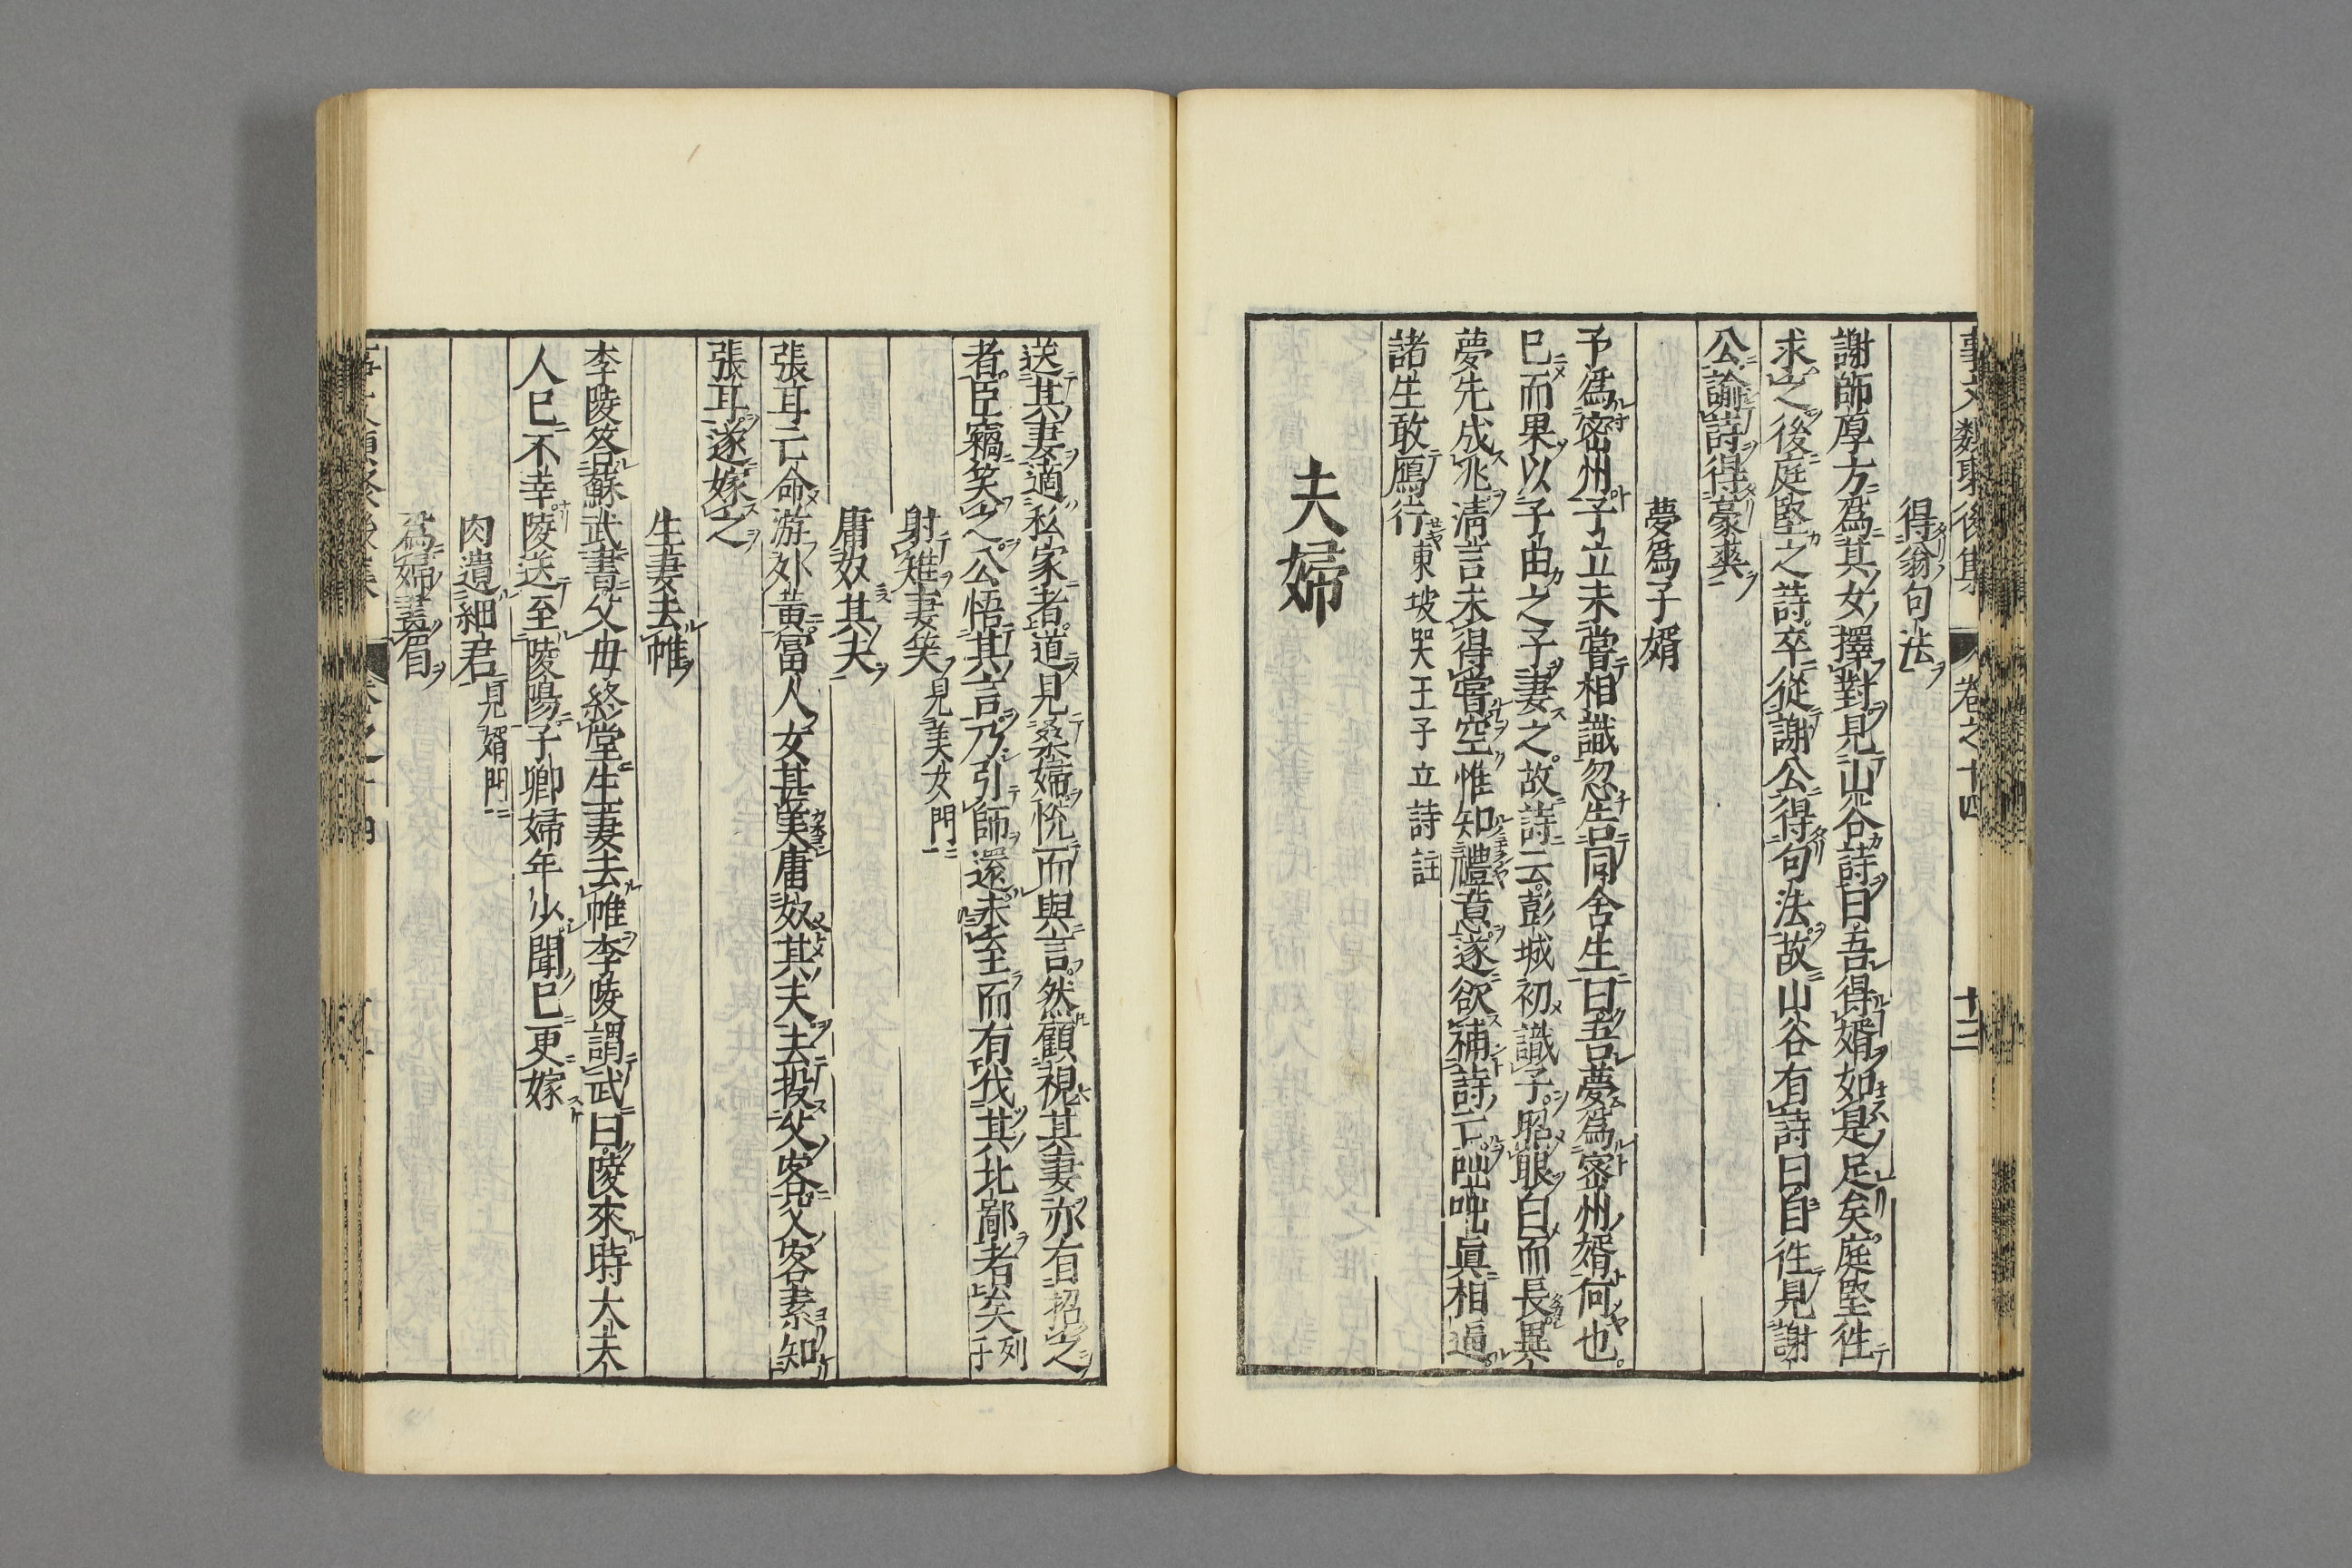 事文類聚後集 卷之十四 十三
得翁句法
謝師厚方為其女擇對見山谷詩曰吾得婿如是足矣庭堅往
求之後庭堅之詩卒從謝公得句法故山谷有詩曰自往見謝
公論詩得豪爽
夢為子婿
予為密州子立未嘗相識忽告同舍生曰吾夢為密州婿何也
巳而果以子由之子妻之故詩云彭城初識子照眼白而長異
夢先成兆清言未得嘗空惟知禮意遂欲補詩亡咄咄真相逼
諸生敢鴈行東坡哭王子立詩註
夫婦
送其妻適私家者道見桑婦悅而與言然顧視其妻亦有招之
者臣竊笑之公悟其言乃引師還未至而有伐其北鄙者矣列子
射雉妻笑見美女門
庸奴其夫
張耳亡命游外黃富人女甚美庸奴其夫去投父客父客素知
張耳遂嫁之
生妻去帷
李陵答蘇武書父母終堂生妻去帷李陵謂武曰陵來時太夫
人巳不幸陵送至陵陽子卿婦年少聞巳更嫁
肉遺細君見婿門
為婦畫眉